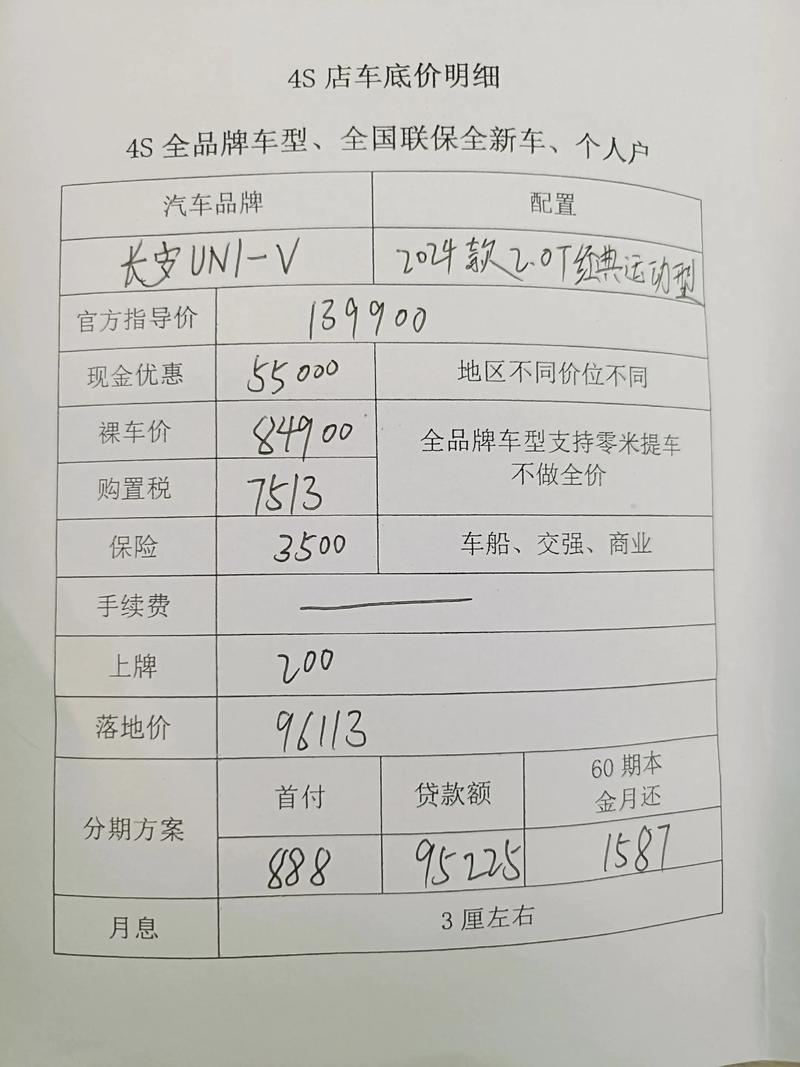 4S 店车底价明细
4S 全品牌车型、全国联保全新车、个人户
汽车品牌 配置
长安UNI-V 2024款2.0T经典运动型
官方指导价 139900
现金优惠 55000 地区不同价位不同
裸车价 84900 全品牌车型支持零米提车
不做全价
购置税 7513
保险 3500 车船、交强、商业
手续费
上牌 200
落地价 96113
分期方案 首付 贷款额 60期本
金月还
888 95225 1587
月息 3厘左右